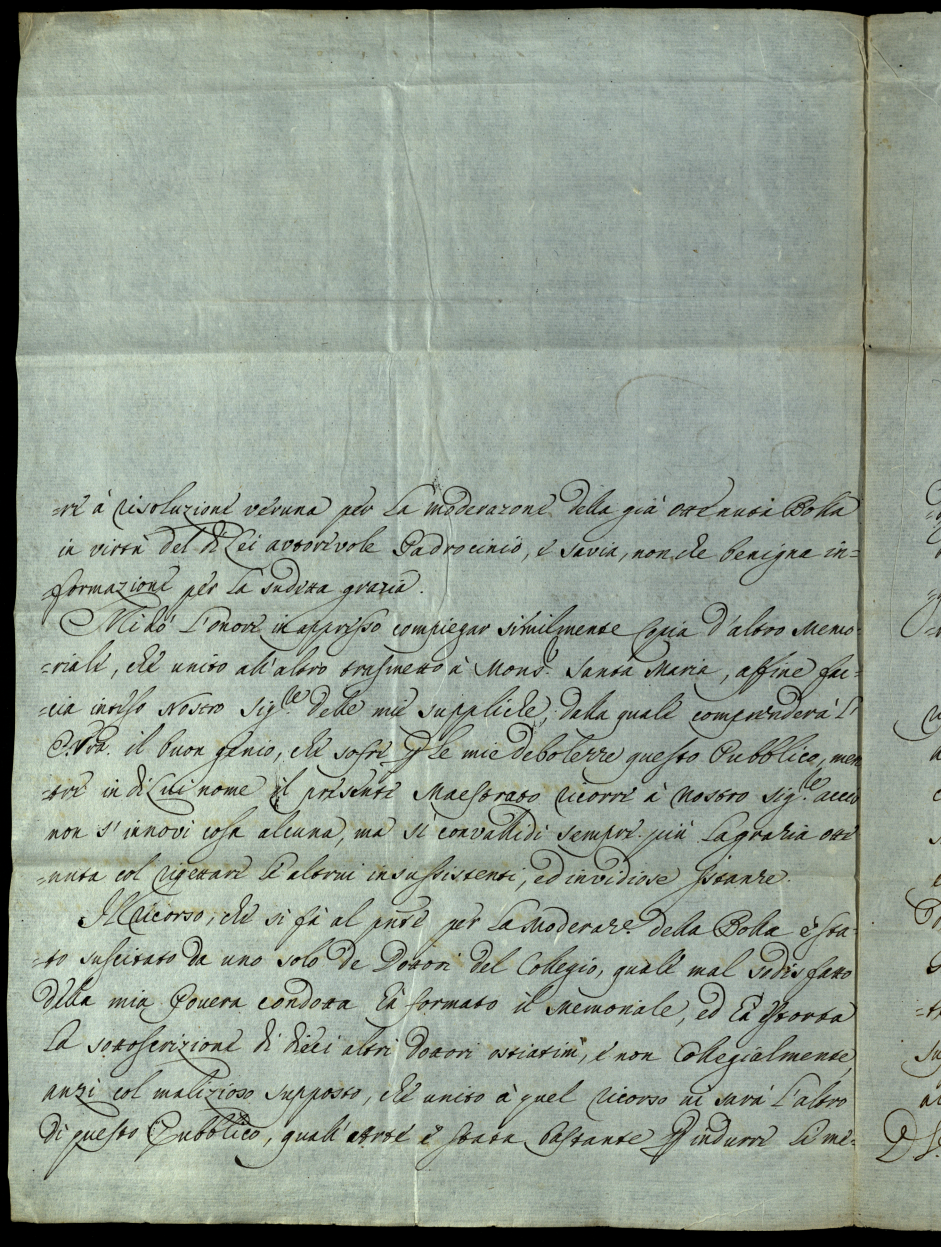 =re à risoluzione veruna per la moderazone della già ottenuta Bolla
in virtù del di Lei autorevole Padrocinio, e savia, non che benigna in=
formazione per la sudetta grazia.
Mi dò l'onore in appresso compiegar similmente Copia d'altro Memo=
=riale, che unito all'altro trasmetto à Mons.r Santa Maria, affine fac=
=cia inteso Nostro Sig.re delle mie suppliche, dalla quale comprenderà l'
il buon genio, che sofre p le mie debolezze questo Pubblico, men
=tre in di Lui nome il presente Maestrato ricorre à nostro Sig.re accio
non s'innovi cosa alcuna, ma si convallidi sempre più la grazia otte
=nuta col rigettare le altrui insussistenti, ed invidiose Istanze.
Il ricorso, che si fà al pnte per la Moderaz.e della Bolla è sta=
=to suscitato da uno solo de Dottori del Collegio, quale mal sodisfatto
della mia Povera condotta hà formato il Memoriale, ed hà estorta
la sottoscrizione di dieci altri dottori ostiatim, e non Collegialmente,
anzi col malizioso supposto, che unito à quel ricorso vi sarà l'altro
di questo Pubblico, quale arte è stata bastante p indurre li me=